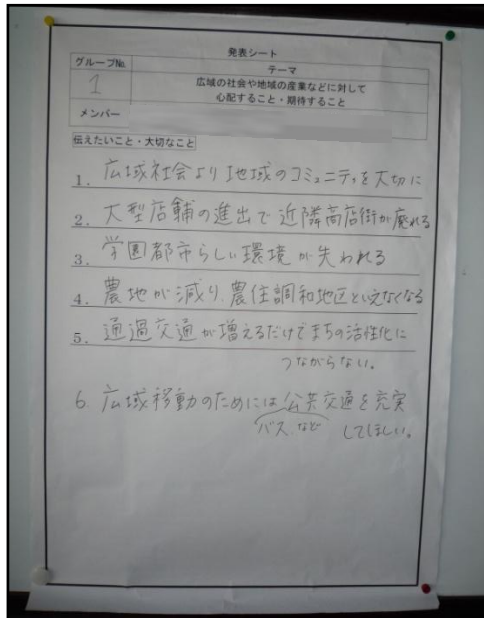 発表シート
グループNo. テーマ
1 広域の社会や地域の産業などに対して
心配すること・期待すること
メンバー
伝えたいこと・大切なこと
1. 広域社会より地域のコミュニティを大切に
2. 大型店舗の進出で近隣商店街が廃れる
3. 学園都市らしい環境が失われる
4. 農地が減り、農住調和地区といえなくなる
5. 通過交通が増えるだけでまちの活性化に
つながらない。
6. 広域移動のためには公共交通を充実
バス、など してほしい。